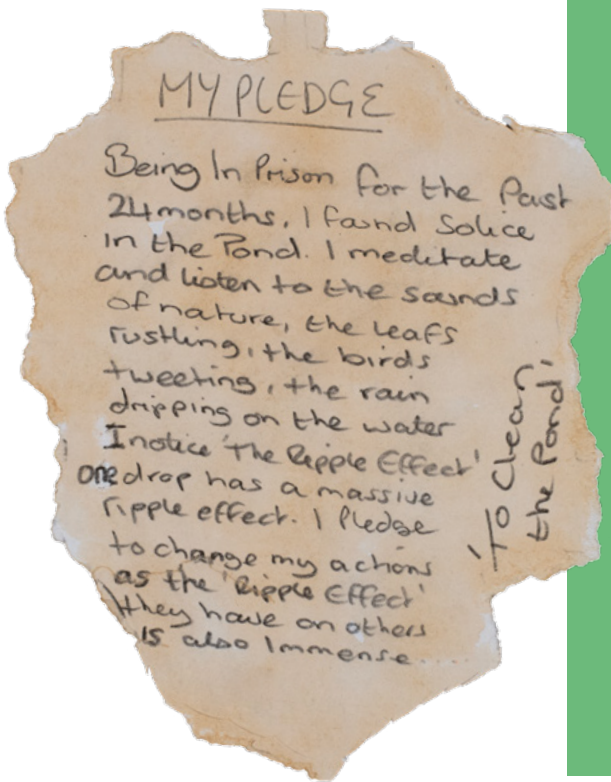 MY PLEDGE
Being In Prison for the Past
24 months, I found Solice
in the Pond. I meditate
and listen to the sounds
of nature, the leafs
rustling, the birds
tweeting, the rain
dripping on the water
I notice 'The Ripple Effect'
one drop has a massive
ripple effect. I Pledge
to change my actions
as the 'Ripple Effect'
they have on others
is also Immense.....
'To Clean
the Pond'